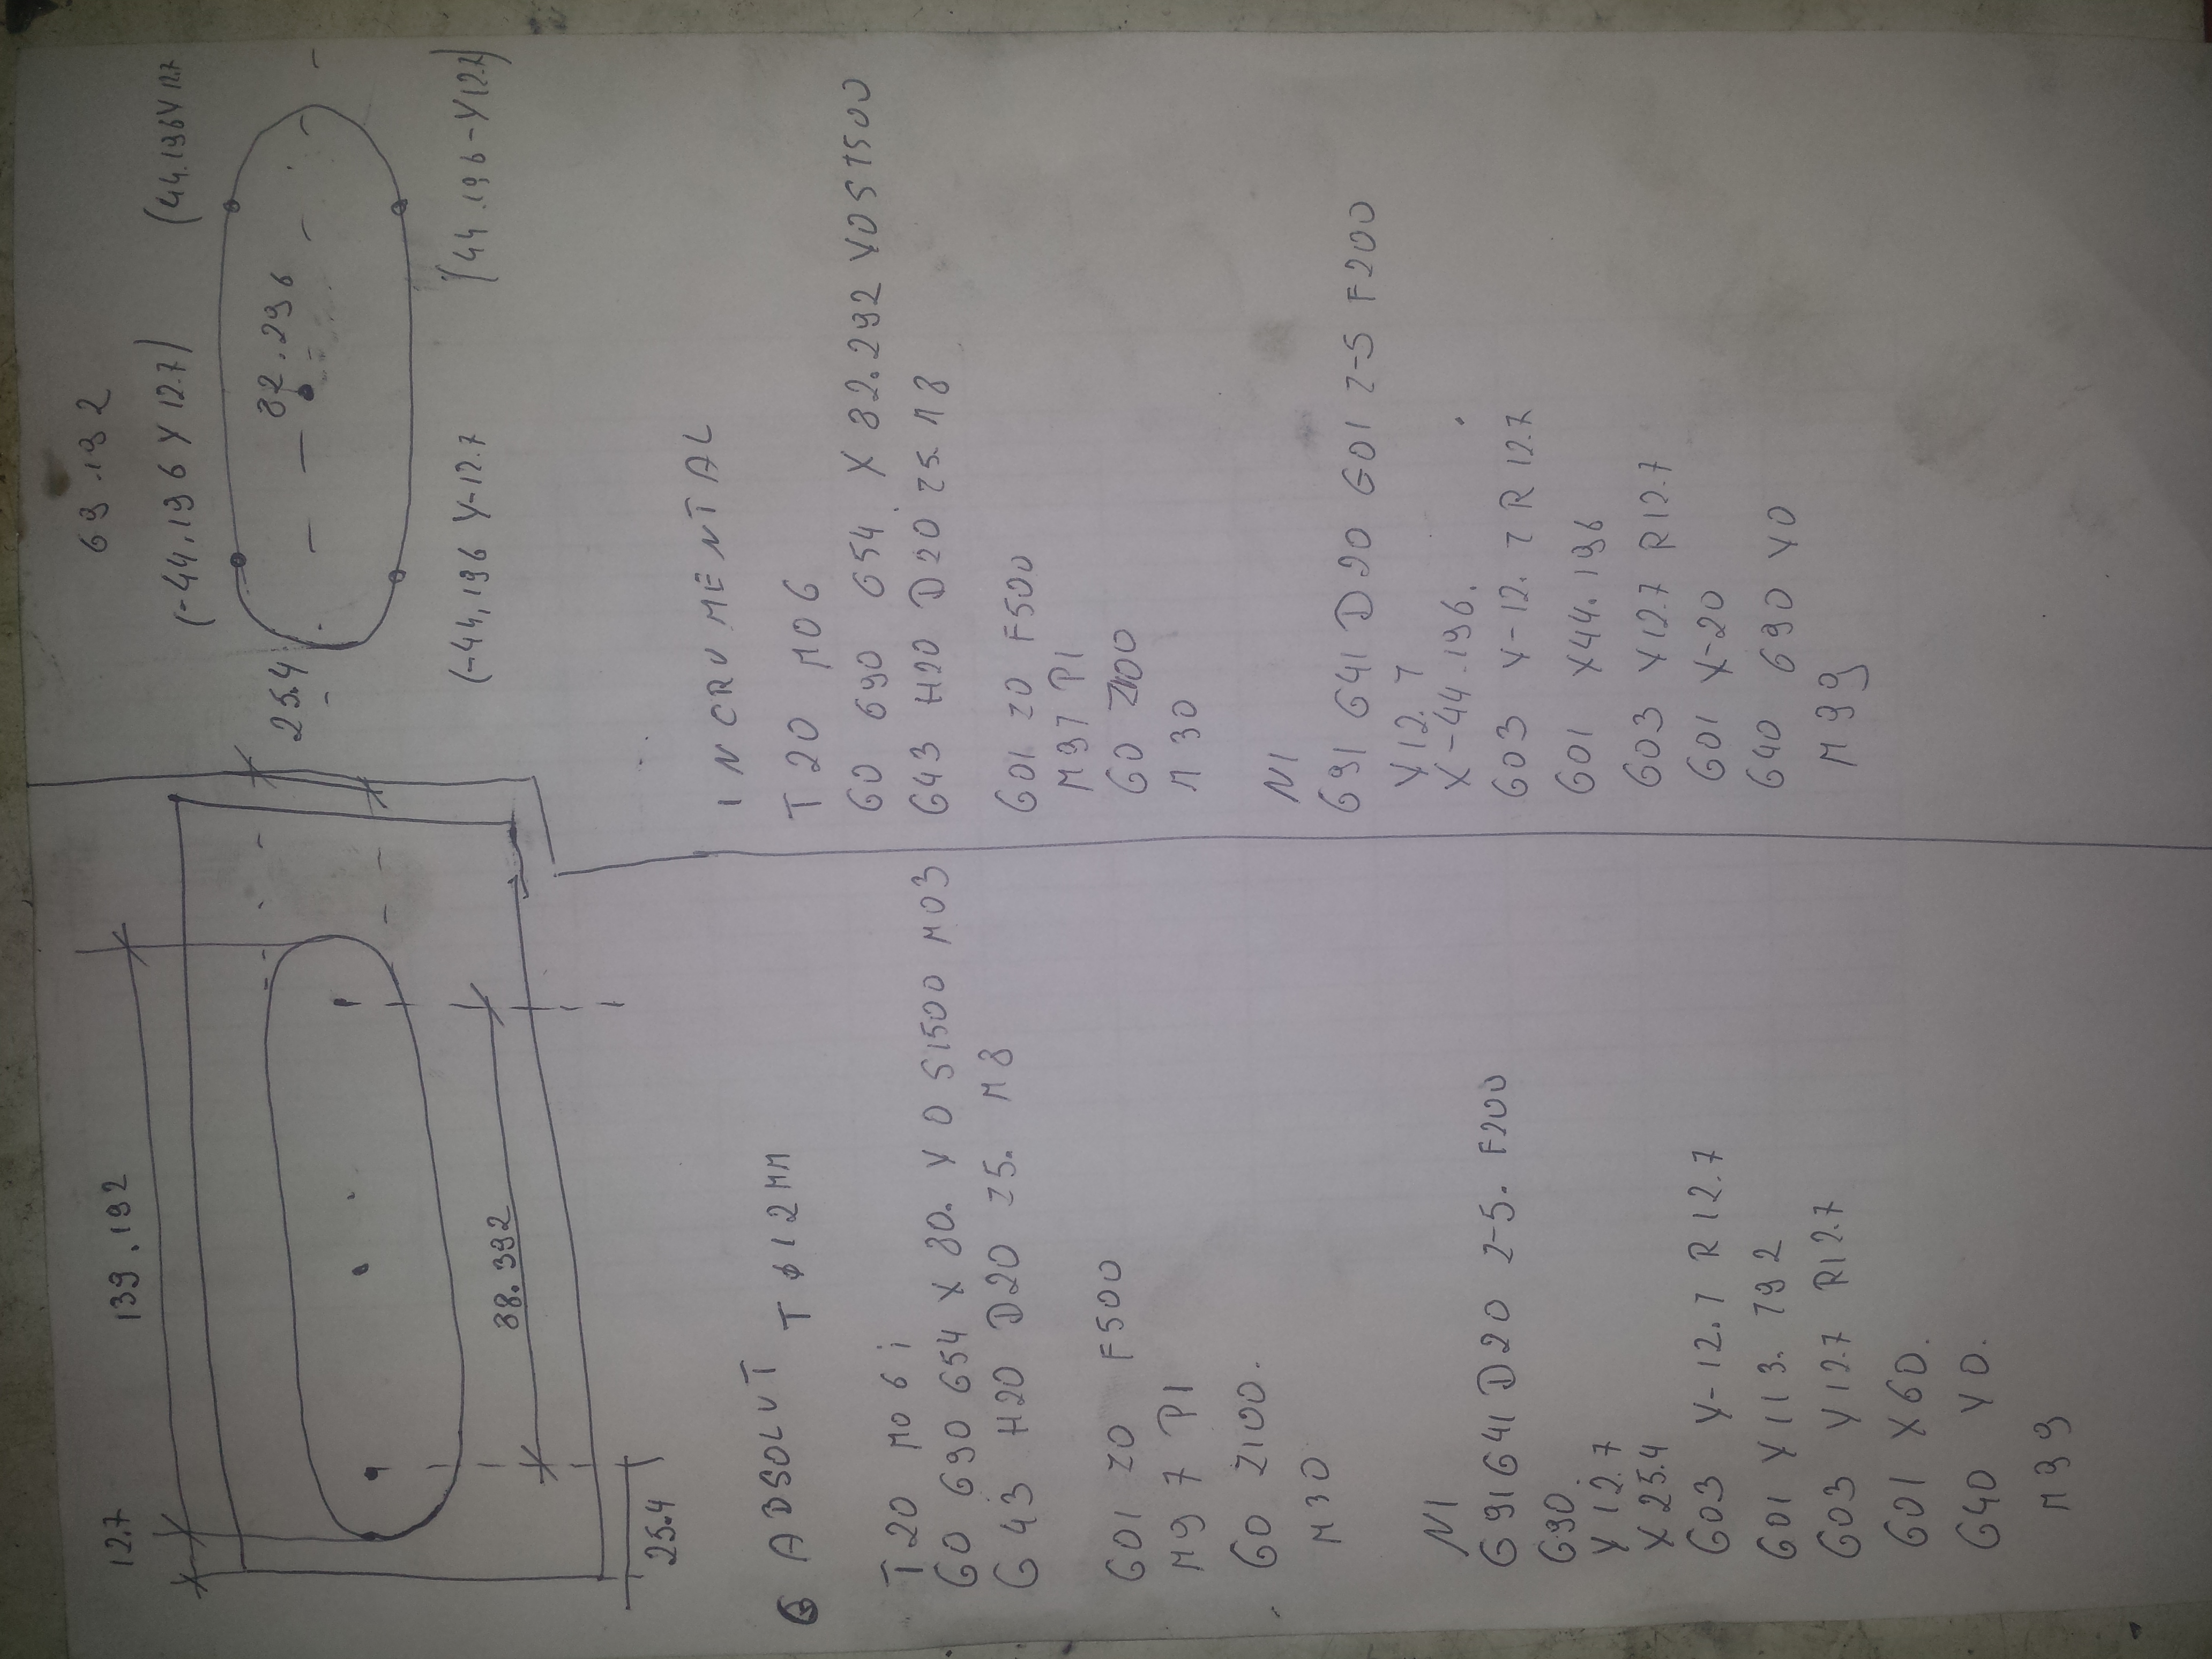 12.7
139.192
25.4
88.392
25.4
69.192
(-44.196 Y 12.7)
(44.196 Y 12.7
82.296
(-44.196 Y-12.7
(44.196 -Y12.7)
ABSOLUT T ϕ 12 MM
T20 M06
G0 G90 G54 X 80. Y0 S1500 M03
G43 H20 D20 Z5. M8
G01 Z0 F500
M97 P1
G0 Z100.
M30
N1
G91 G41 D20 Z-5. F200
G90
Y 12.7
X 25.4
G03 Y-12.7 R12.7
G01 X113.792
G03 Y12.7 R12.7
G01 X60.
G40 Y0.
M99
INCRUMENTAL
T20 M06
G0 G90 G54 X 82.292 Y0 S1500
G43 H20 D20 Z5. M8
G01 Z0 F500
M97 P1
G0 Z100
M30
N1
G91 G41 D20 G01 Z-5 F200
Y12.7
X-44.196.
G03 Y-12.7 R12.7
G01 X44.196
G03 Y12.7 R12.7
G01 X-20
G40 G90 Y0
M99